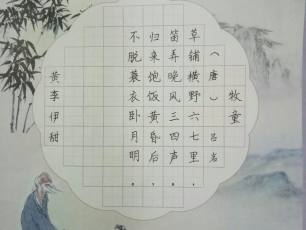 牧童
（唐）吕岩
草铺横野六七里，
笛弄晚风三四声。
归来饱饭黄昏后，
不脱蓑衣卧月明。
黄李伊甜